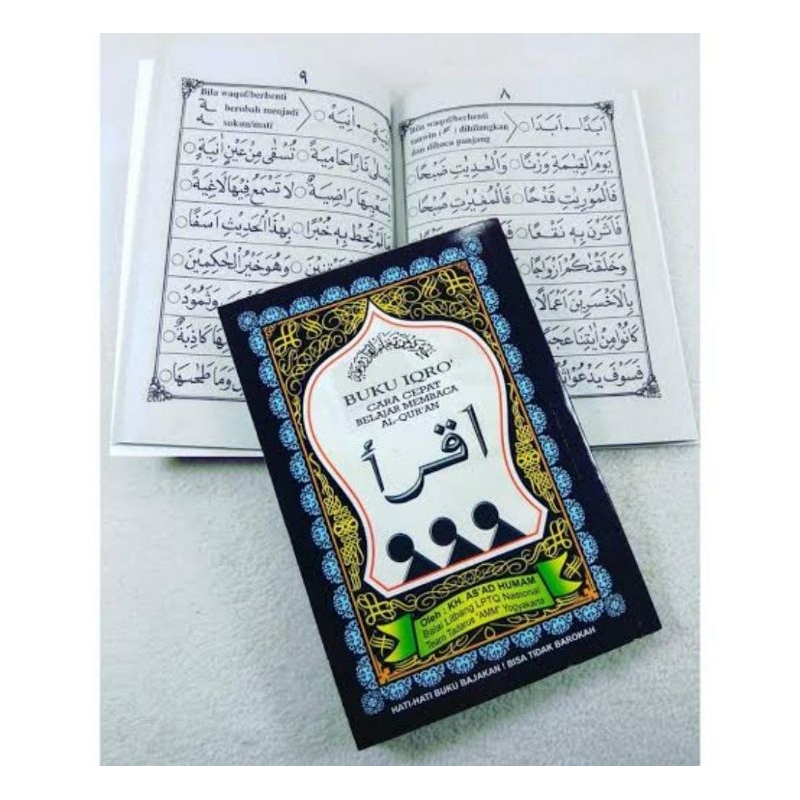 ٩
Bila waqof/berhenti
ـة berobah menjadi
ـه sukun/mati
ـيَةٍ ← اٰنِيَهْ
تَصْلٰى نَارًا حَامِيَةً ○ تُسْقٰى مِنْ عَيْنٍ اٰنِيَةٍ ○
لِسَعْيِهَا رَاضِيَةٌ ○ لَا تَسْمَعُ فِيْهَا لَاغِيَةً ○
مَالَمْ تُحِطْ بِهٖ خُبْرًا ○ بِهٰذَا الْحَدِيْثِ اَسَفًا ○
وَهُوَ خَيْرُ الْحٰكِمِيْنَ ○
وَثَمُوْدُ
كَاذِبَةٌ ○
وَمَا طَحٰىهَا ○
٨
Bila waqof/berhenti
tanwin ( ـً ) dihilangkan
dan dibaca panjang
اَبَدًا ← اَبَدَا
يَوْمَ الْقِيٰمَةِ وَزْنًا ○ وَالْعٰدِيٰتِ ضَبْحًا ○
فَالْمُوْرِيٰتِ قَدْحًا ○ فَالْمُغِيْرٰتِ صُبْحًا ○
فَاَثَرْنَ بِهٖ نَقْعًا ○
وَخَلَقْنٰكُمْ اَزْوَاجًا ○
بِالْاَخْسَرِيْنَ اَعْمَالًا ○
كَانُوْا مِنْ اٰيٰتِنَا عَجَبًا
فَسَوْفَ يَدْعُوْا
BUKU IQRO'
CARA CEPAT
BELAJAR MEMBACA
AL-QUR'AN
اقرأ
Oleh : KH. AS'AD HUMAM
Balai Litbang LPTQ Nasional
Team Tadarus "AMM" Yogyakarta
HATI-HATI BUKU BAJAKAN ! BISA TIDAK BAROKAH